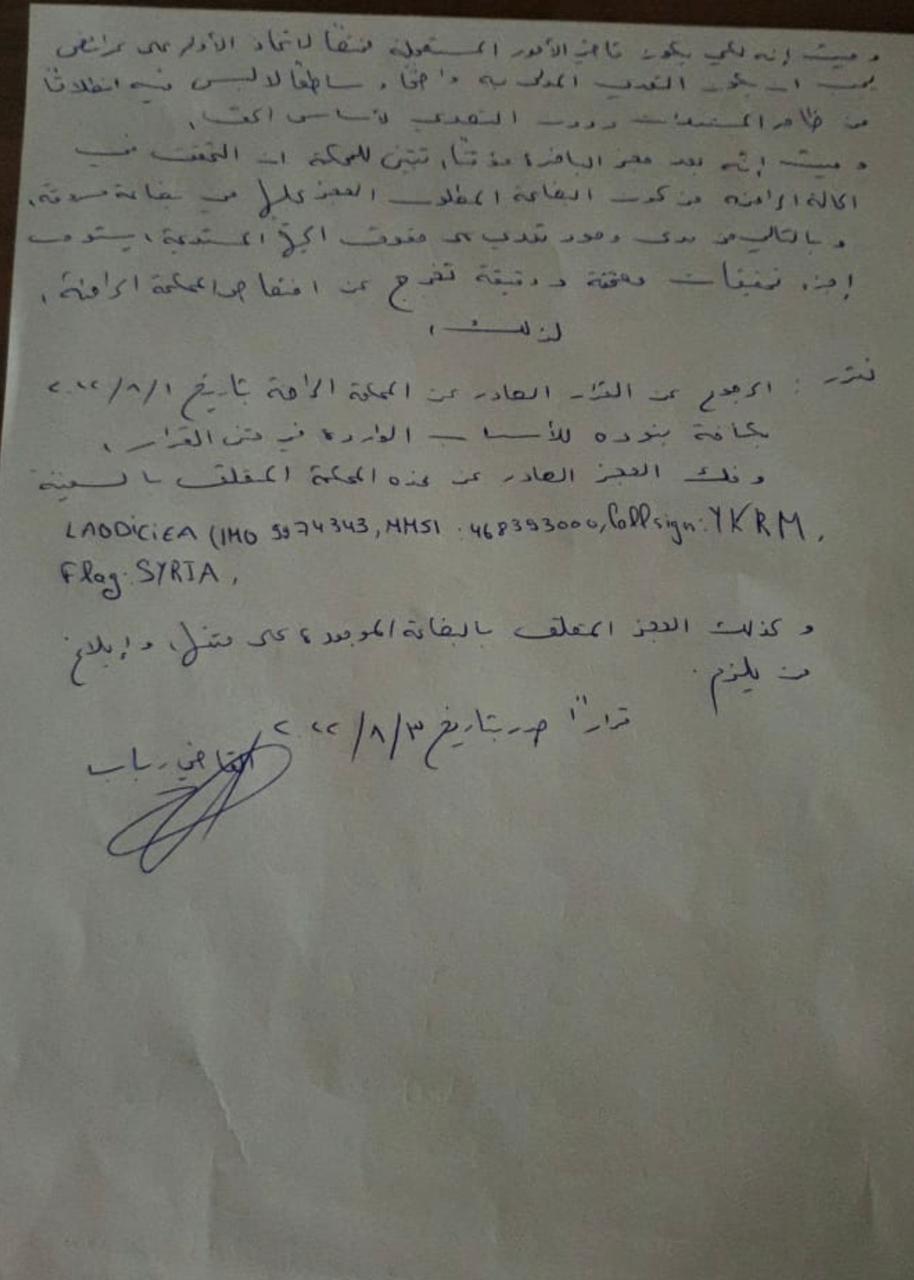 وحيث إنه لكي يكون قاضي الأمور المستعجلة مختصاً لاتخاذ الأوامر على عرائض
يجب ان يكون التعدي المدلى به واضحاً، ساطعاً لا لبس فيه انطلاقاً
من ظاهر المستندات ودون التصدي لأساس الحق.
وحيث إنه بعد حجز الباخرة مؤقتاً، تبيّن للمحكمة ان التحقق في
الحالة الراهنة من كون البضاعة المطلوب الحجز عليها هي بضاعة مسروقة،
وبالتالي من مدى وجود تعدٍ على حقوق الجهة المستدعية، يستوجب
إجراء تحقيقات معمقة ودقيقة تخرج عن اختصاص المحكمة الراهنة،
لذلك،
نقرر: الرجوع عن القرار الصادر عن المحكمة الراهنة بتاريخ ٢٠٢٢/٨/١
بكافة بنوده للأسباب الواردة في متن القرار،
وفك الحجز الصادر عن هذه المحكمة المتعلق بالسفينة
LAODICIEA (IMO 9274343, MMSI: 468393000, Call sign: YKRM,
Flag: SYRIA,
وكذلك الحجز المتعلق بالبضاعة الموجودة على متنها، وإبلاغ
من يلزم.
قراراً صدر بتاريخ ٢٠٢٢/٨/٣
القاضي رباب